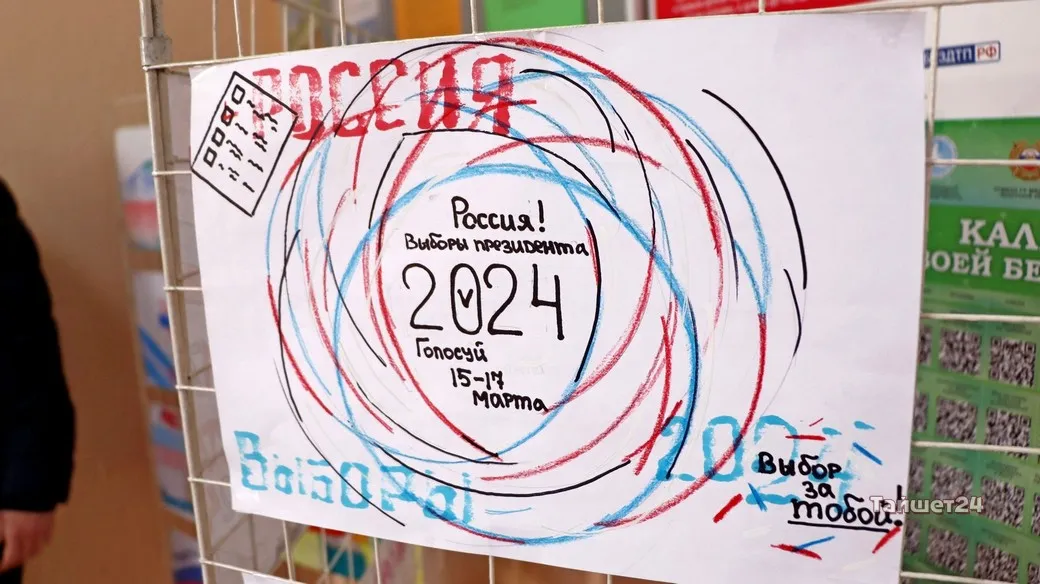 РОССИЯ
Россия!
Выборы президента
2024
Голосуй
15-17
марта
Выборы
2024
Выбор
за
тобой!
Тайшет24
ЗДТП РФ
КАЛ
ВОЕЙ БЕ